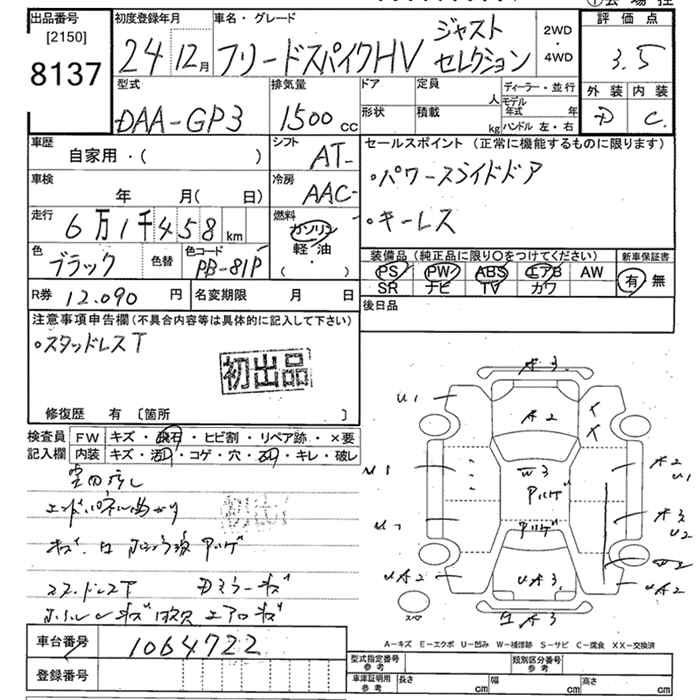 出品番号 初度登録年月 車名・グレード 評価点
[2150]
8137
24 12月 フリードスパイクHV ジャスト セレクション 2WD・4WD 3.5
型式 排気量 ドア 定員 人 ディーラー・並行 外装 内装
DAA-GP3 1500cc 形状 積載 kg モデル年式 年 ハンドル 左・右 D C
車歴 自家用・( ) シフト AT セールスポイント(正常に機能するものに限ります)
車検 年 月( 日) 冷房 AAC ・パワースライドドア
走行 6万1千458km 燃料 ガソリン 軽・油 ( ・ ) ・キーレス
色 ブラック 色替 色コード PB-81P 装備品(純正品に限り○をつけてください) 新車保証書
PS PW ABS エアB AW 有 無
SR ナビ TV カワ
R券 12.090円 名変期限 月 日 後日品
注意事項申告欄(不具合内容等は具体的に記入して下さい)
・スタッドレスT
初出品
修復歴 有 〔箇所 〕
検査員 FW キズ・飛石・ヒビ割・リペア跡・×要
記入欄 内装 キズ・汚れ・コゲ・穴・スレ・キレ・破レ
エンドパネル曲がり
スタッドレスT Dミラーキズ
A3
U1 A2
U1 W3 A2 U1
ハゲ
U2 A3 U2
W2
UA2 UA3 UA2
スペア
A3
A-キズ E-エクボ U-凹み W-補修跡 S-サビ C-腐食 XX-交換済
車台番号 1064722
登録番号
型式指定番号 参考 類別区分番号 参考
車庫証明用 参考 長さ cm 幅 cm 高さ cm